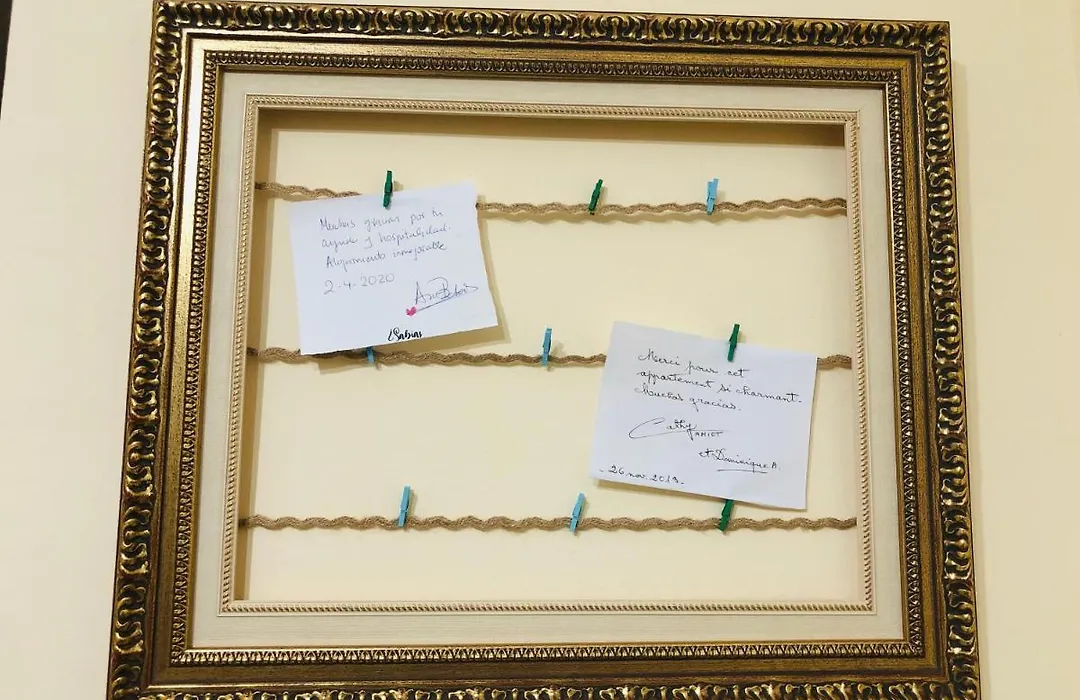 Muchas gracias por tu
ayuda y hospitalidad.
Alojamiento inmejorable
2-4-2020
Merci pour cet
appartement si charmant.
Muchas gracias.
Cathy
et Dominique A.
- 26 nov. 2019 -